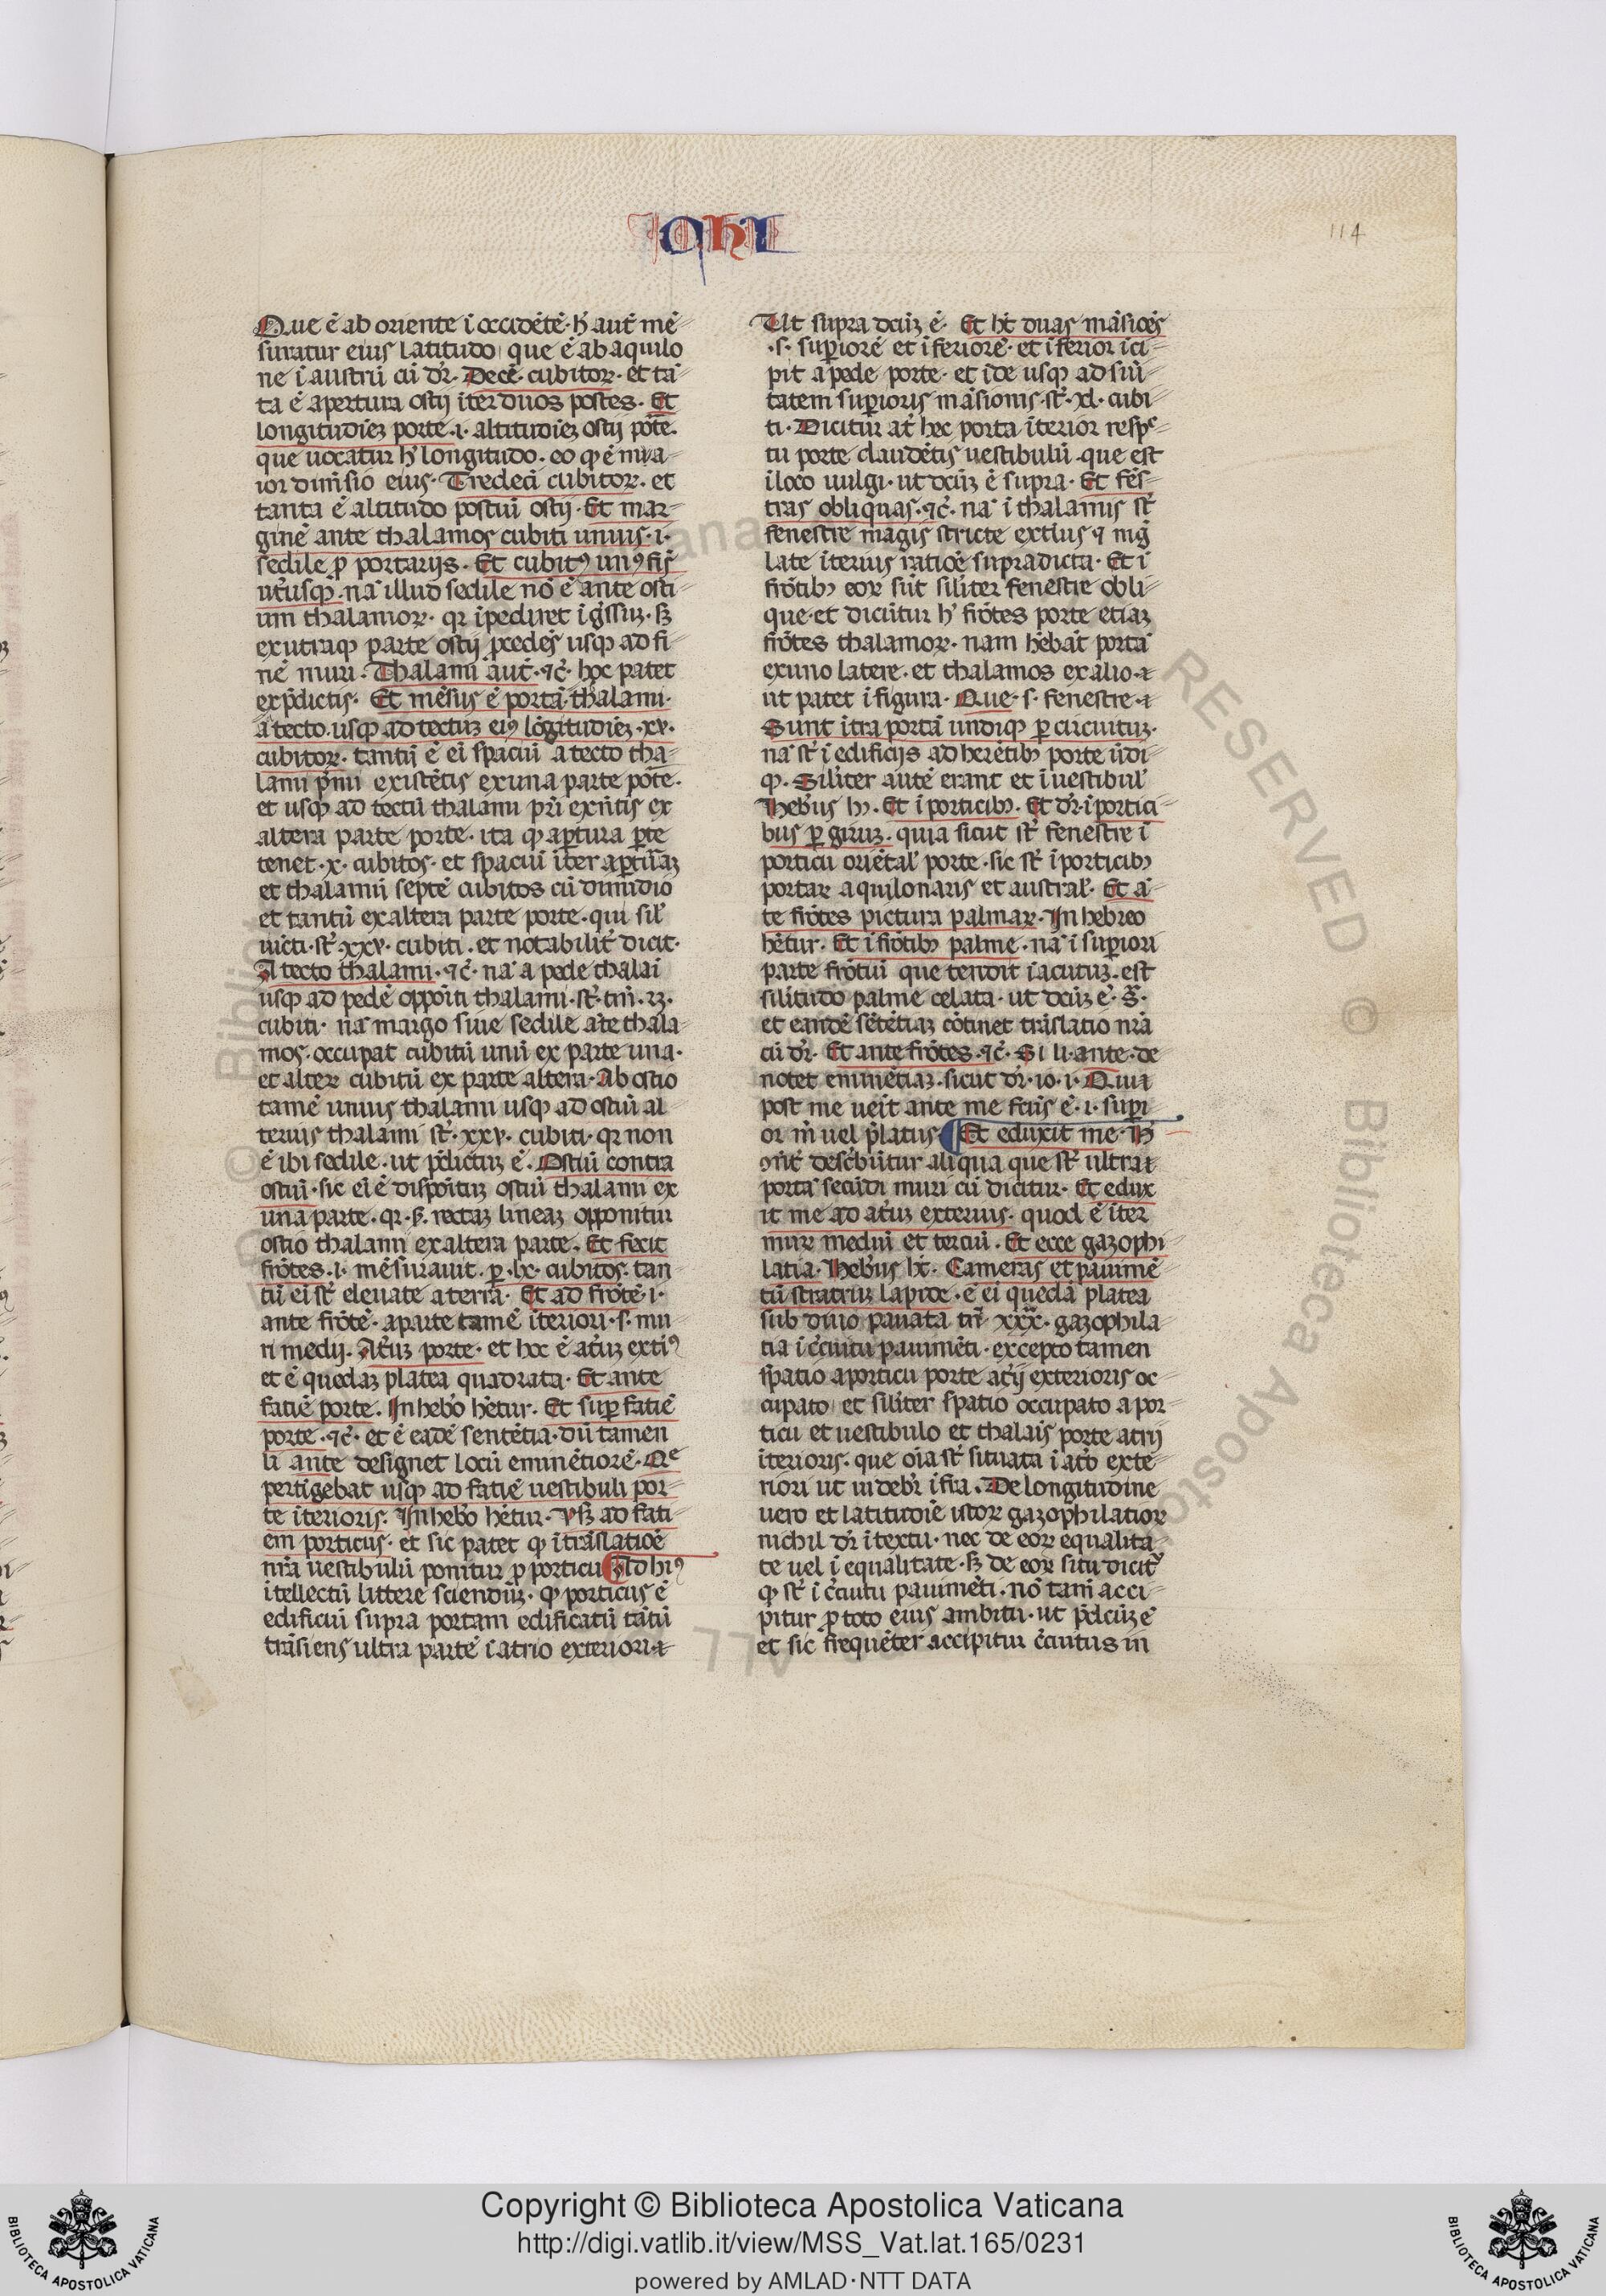 QHI
114
Que ē ab oriente ī occidētē. hͥ aut̄ mē
suratur eius latitudo que ē ab aquilo
ne ī austrū cū dr̄. Decē cubitoꝝ. et tā
ta ē apertura ostij īter duos postes. Et
longitudīeꝫ porte .i. altitudīeꝫ ostij porte.
que uocatur hͥ longitudo. eo ꝙ ē ma
ior dim̄sio eius. Tredecī cubitoꝝ. et
tanta ē altitudo postiū ostij. Et mar
ginē ante thalamos cubiti unius .i.
sedile ꝓ portarijs. Et cubitꝰ unꝰ fis̄
utrͥusqꝫ. nā illud sedile nō ē ante osti
um thalamoꝝ. qꝛ īpediret īgͥssuꝫ. sꝫ
ex utraqꝫ parte ostij ꝓcedēs usqꝫ ad fi
nē muri. Thalami aut̄. ⁊c̄. hoc patet
ex p̄dictis. Et mēsus ē portā thalami.
a tecto usqꝫ ad tectuꝫ eiꝰ lōgitudīeꝫ .xv.
cubitoꝝ. tantū ē eī spaciū a tecto tha
lami pͥmi existētis ex una parte porte.
et usqꝫ ad tectū thalami pͥi exn̄tis ex
altera parte porte. ita ꝙ aꝑtura porte
tenet .x. cubitos. et spaciū īter aꝑturaꝫ
et thalamū septē cubitos cū dimidio
et tantū ex altera parte porte. qui sil̄
iūcti. st̄ .xxv. cubiti. et notabilit̄ dicit.
A tecto thalami. ⁊c̄. nā a pede thalāi
usqꝫ ad pedē oppōiti thalami. st̄. tm̄
cubiti. nā margo siue sedile āte thala
mos. occupat cubitū unū ex parte una.
et alteꝝ cubitū ex parte altera. Ab ostio
tamē unius thalami usqꝫ ad ostiū al
terius thalami st̄ .xxv. cubiti. qꝛ non
ē ibi sedile. ut p̄dictuꝫ ē. Ostiū contra
ostiū. sic eī ē dispōituꝫ ostiū thalami ex
una parte. qꝛ .s̄. rectaꝫ lineaꝫ opponitur
ostio thalami ex altera parte. Et fecit
frōtes .i. mēsurauit. ꝑ .lx. cubitos. tan
tū eī st̄ eleuate a terra. Et ad frōtē .i.
ante frōtē. a parte tamē īteriori .s. mu
ri medij. Atͥuꝫ porte. et hoc ē atͥuꝫ extͥꝰ
et ē quedaꝫ platea quadrata. Et ante
fatiē porte. In hebͦo hētur. Et suꝑ fatiē
porte. ⁊c̄. et ē eadē sentētia. dū tamen
li ante designet locū eminētiorē. Qͤ
pertigebat usqꝫ ad fatiē uestibuli por
te īterioris. In hebͦo hētur. usꝫ ad fati
em porticus. et sic patet ꝙ ī trāslatiōe
nrā uestibulū ponitur ꝓ porticu. Ad hiꝰ
ītellectū littere sciendūꝫ. ꝙ porticus ē
edificiū supra portam edificatū tātū
trāsiens ultra partē ī atrio exteriori.
Ut supra dcūꝫ ē. Et ht̄ duas māsiōes
.s. suꝑiorē et īferiorē. et īferior īci
pit a pede porte. et īde usqꝫ ad sū
tatem suꝑioris māsionis. st̄ .xl. cubi
ti. Dicitur at̄ hec porta īterior respe
ctu porte claudētis uestibulū. que est
ī loco uulgi. ut dcūꝫ ē supra. Et fēs
tras obliquas. ⁊c̄. nā ī thalamis st̄
fenestre magis stricte extͥus ⁊ mg̊
late īterius ratiōe supradicta. Et ī
frōtibꝫ eoꝝ sūt silīter fenestre obli
que. et dicūtur hͥ frōtes porte etiaꝫ
frōtes thalamoꝝ. nam hēbāt portā
ex uno latere. et thalamos ex alio.
ut patet ī figura. Que .s. fenestre.
Sunt ītra portā undiqꝫ ꝑ circuituꝫ.
nā st̄ ī edificijs ad herētibꝫ porte ūdi
qꝫ. Silīter autē erant et ī uestibul̄
Hebr̄us hꝫ. Et ī porticibꝫ. Et dr̄. ī portici
bus ꝑ giruꝫ. quia sicut st̄ fenestre ī
porticu oriētal̄ porte. sic st̄ ī porticibꝫ
portaꝝ aquilonaris et austral̄. Et ā
te frōtes pictura palmaꝝ. In hebreo
hētur. Et ī frōtibꝫ palme. nā ī suꝑiori
parte frōtiū que tendit ī acutuꝫ. est
silitudo palme celata. ut dcūꝫ ē. s̄.
et eandē sētētiaꝫ cōtinet trāslatio nrā
cū dr̄. Et ante frōtes. ⁊c̄. Si li ante. de
notet eminētiaꝫ. sicut dr̄. io. i. Qui
post me ueīt ante me fc̄us ē .i. suꝑi
or m̄ uel p̄latus. Et eduxit me. Hͥ
ↄn̄t̄ describūtur aliqua que st̄ ultra
portā secūdi muri cū dicitur. Et edux
it me ad atͥuꝫ exterius. quod ē īter
muꝝ mediū et terciū. Et ecce gazophi
latia. Hebr̄us ht̄. Cameras et pauimē
tū stratuꝫ lapide. ē eī quedā platea
sub diuo pauata tm̄ .xxx. gazophila
tia ī cͥcuitu pauimēti. excepto tamen
spatio a porticu porte atͥij exterioris oc
cupato et silīter spatio occupato a por
ticu et uestibulo et thalaīs porte atrij
īterioris. que oīa st̄ situata ī atͥo exte
riori ut uidebr̄ īfra. De longitudine
uero et latitudīe istoꝝ gazophilatioꝝ
nichil dr̄ ī textu. nec de eoꝝ equalita
te uel īequalitate. sꝫ de eoꝝ situ dicitͬ
ꝙ st̄ ī cͥcuitu pauimēti. nō tam̄ acci
pitur ꝓ toto eius ambitu. ut p̄dcūꝫ ē
et sic frequēter accipitur cͥcuitus in
Copyright © Biblioteca Apostolica Vaticana
http://digi.vatlib.it/view/MSS_Vat.lat.165/0231
powered by AMLAD·NTT DATA
BIBLIOTECA APOSTOLICA VATICANA
BIBLIOTECA APOSTOLICA VATICANA